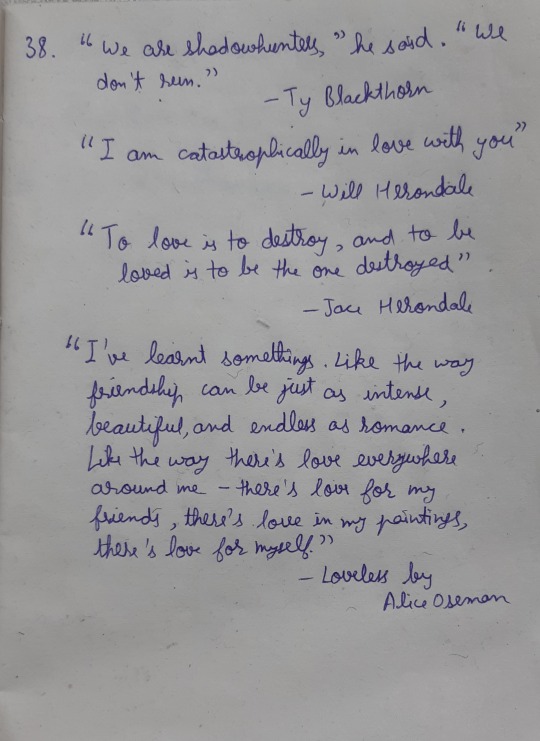 38. "We are shadowhunters," he said. "We
don't run."
- Ty Blackthorn
"I am catastrophically in love with you"
- Will Herondale
"To love is to destroy, and to be
loved is to be the one destroyed"
- Jace Herondale
"I've learnt somethings. Like the way
friendship can be just as intense,
beautiful, and endless as romance.
Like the way there's love everywhere
around me - there's love for my
friends, there's love in my paintings,
there's love for myself."
- Loveless by
Alice Oseman